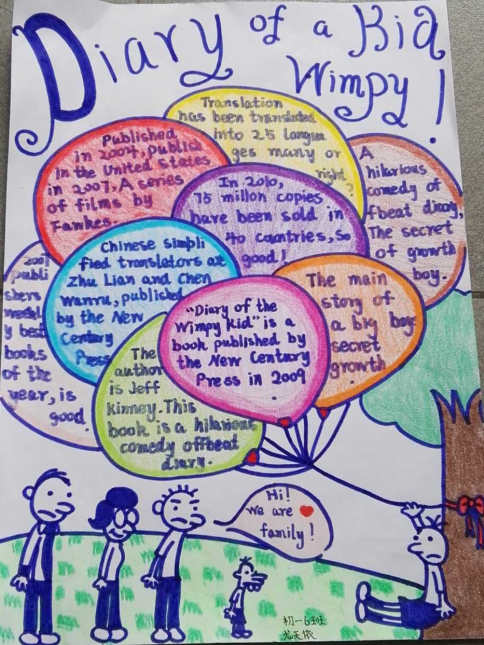 Diary of a Kid
Wimpy!
Translation
has been translated
into 25 langua
ges many or
right?
Published
in 2004, publish
in the United States
in 2007, A series
of films by
Fawkes.
In 2010,
75 millon copies
have been sold in
40 countries, so
good!
A
hilarious
comedy of
fbeat diary,
The secret
of growth
boy.
2007
publi
shers
weekl
y best
books
of the
year, is
good.
Chinese simpli
fied translators at
Zhu Lian and Chen
Wanru, published
by the New
Century
Press
"Diary of the
Wimpy kid" is a
book published by
the New Century
Press in 2009
The main
story of
a big boy
secret
growth
The
author
is Jeff
kinney. This
book is a hilarious
comedy offbeat
diary.
Hi!
we are
family!
初一6班